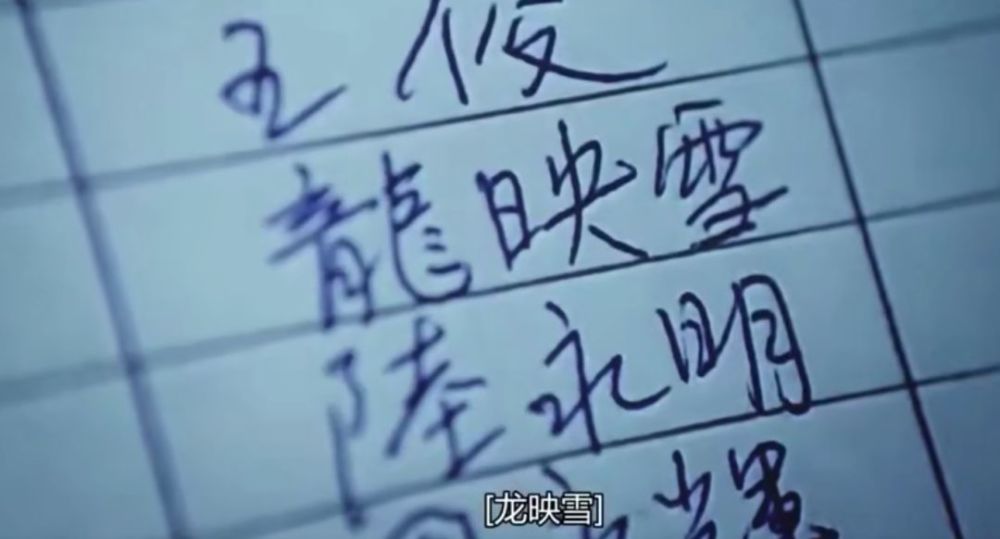 王俊
龍映雪
陸永明
[龙映雪]